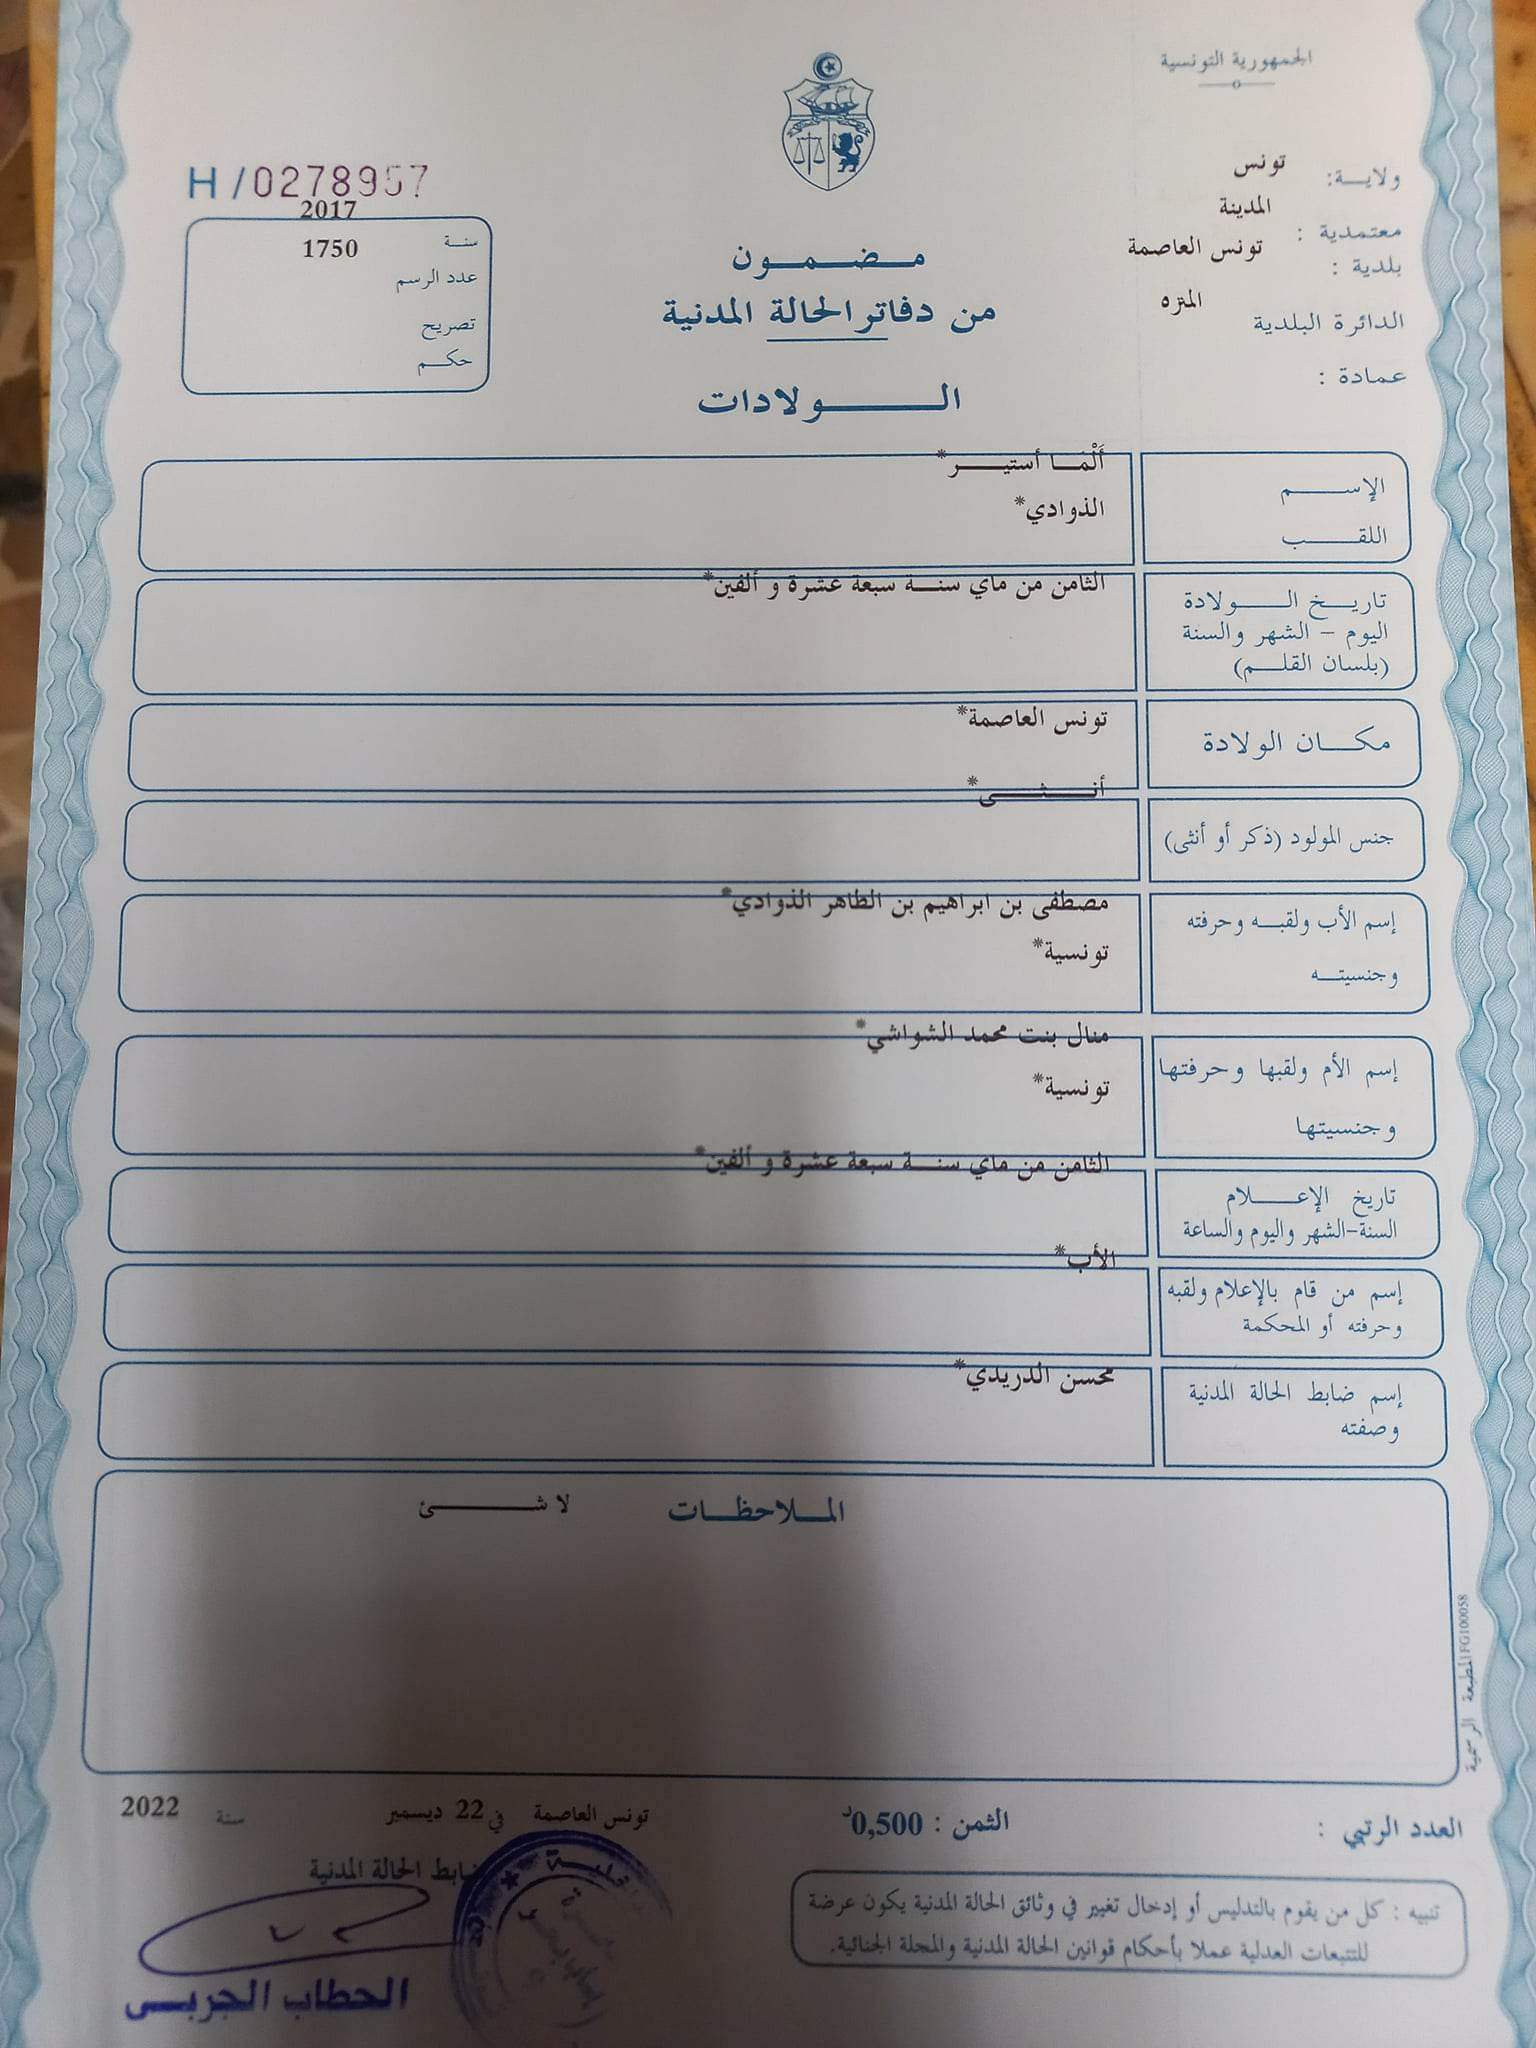 الجمهورية التونسية
ولاية: تونس
معتمدية : المدينة
بلدية : تونس العاصمة
الدائرة البلدية المنزه
عمادة :
H/0278957
2017
سنة 1750
عدد الرسم
تصريح
حكم
مضمون
من دفاتر الحالة المدنية
الولادات
الإسم أَلْمَا أستير*
اللقب الذوادي*
تاريخ الولادة الثامن من ماي سنة سبعة عشرة و ألفين*
اليوم - الشهر والسنة
(بلسان القلم)
مكان الولادة تونس العاصمة*
جنس المولود (ذكر أو أنثى) أنثى*
إسم الأب ولقبه وحرفته مصطفى بن ابراهيم بن الطاهر الذوادي*
وجنسيته تونسية*
إسم الأم ولقبها وحرفتها منال بنت محمد الشواشي*
وجنسيتها تونسية*
تاريخ الإعلام الثامن من ماي سنة سبعة عشرة و ألفين*
السنة-الشهر واليوم والساعة
إسم من قام بالإعلام ولقبه الأب*
وحرفته أو المحكمة
إسم ضابط الحالة المدنية محسن الدريدي*
وصفته
الملاحظات لا شئ
المطبعة الرسمية FG100058
العدد الرتبي :
الثمن : 0,500د
تونس العاصمة في 22 ديسمبر سنة 2022
ضابط الحالة المدنية
الحطاب الجربي
تنبيه : كل من يقوم بالتدليس أو إدخال تغيير في وثائق الحالة المدنية يكون عرضة
للتتبعات العدلية عملا بأحكام قوانين الحالة المدنية والمجلة الجنائية.